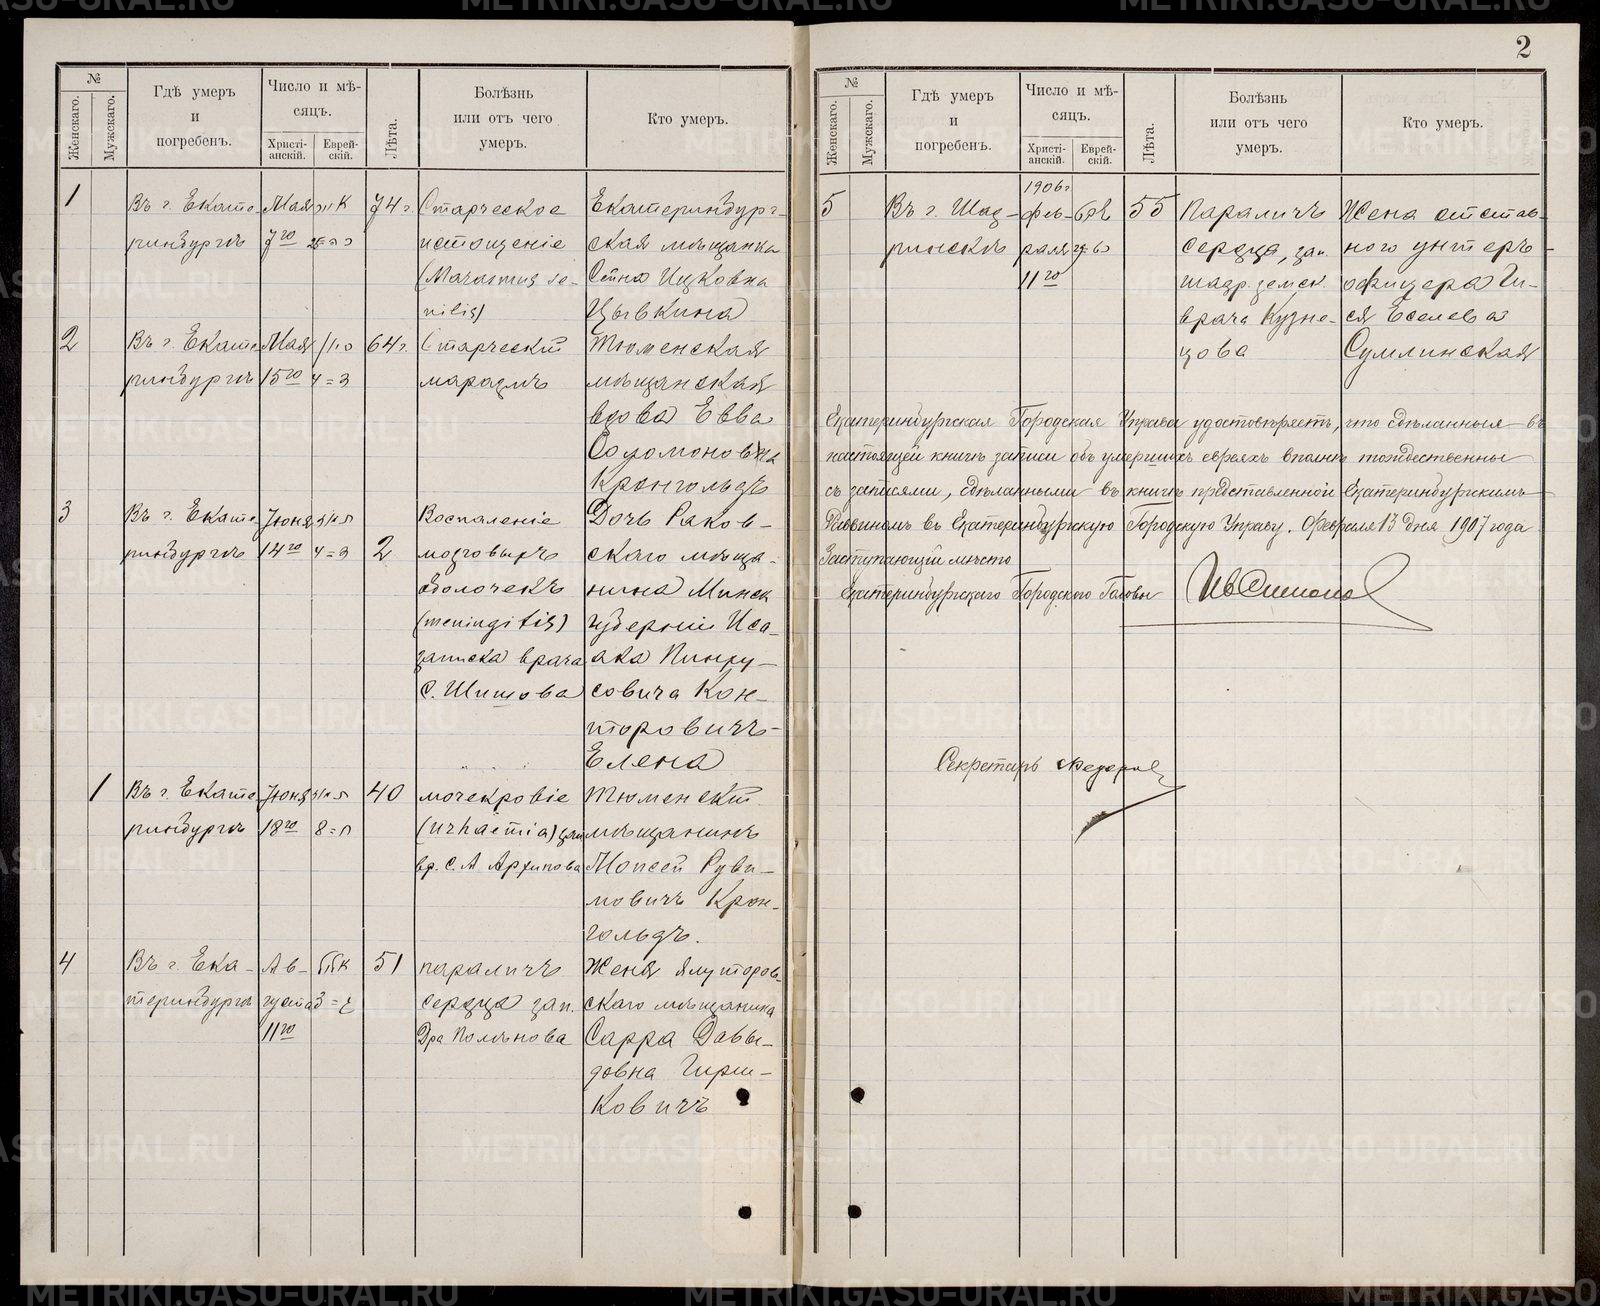 2
№
Женскаго.
Мужскаго.
Гдѣ умеръ
и
погребенъ.
Число и мѣ-
сяцъ.
Христі-
анскій.
Еврей-
скій.
Лѣта.
Болѣзнь
или отъ чего
умеръ.
Кто умеръ.
1
Въ г. Екате
ринбургѣ
Мая
7го
74 г.
Старческое
истощеніе
(Marasmus se-
nilis)
Екатеринбург-
ская мѣщанка
Ицковна
Цывкина
2
Въ г. Екате
ринбургѣ
Мая
15го
64 г.
Старческій
маразмъ
Тюменская
мѣщанская
вдова Евва
Соломоновна
Кронгольдъ
3
Въ г. Екате
ринбургѣ
Іюня
14го
2
Воспаленіе
мозговыхъ
оболочекъ
(meningitis)
записка врача
С. Шишова
Дочь Раков-
скаго мѣща-
нина Минск
губерніи Иса-
ака Пинху-
совича Кон-
торовичъ-
Елена
1
Въ г. Екате
ринбургѣ
Іюня
18го
40
мочекровіе
(urhaemia) зап
вр. С. А Архипова
Тюменскій
мѣщанинъ
Моисей Руви-
мовичъ Крон-
гольдъ.
4
Въ г. Ека-
теринбургѣ
Ав-
густа
11го
51
параличъ
сердца зап.
Дра Помѣнова
Жена Ялуторов-
скаго мѣщанина
Сарра Давы-
довна Гирш-
ковичъ
№
Женскаго.
Мужскаго.
Гдѣ умеръ
и
погребенъ.
Число и мѣ-
сяцъ.
Христі-
анскій.
Еврей-
скій.
Лѣта.
Болѣзнь
или отъ чего
умеръ.
Кто умеръ.
5
Въ г. Шад-
ринскѣ
1906 г
фев-
раля
11го
55
Параличъ
сердца, зап.
шадр. земск.
врача Кузне-
цова
Жена отстав-
ного унтеръ-
офицера Ги-
ся Еселева
Сумлинская
Екатеринбургская Городская Управа удостовѣряетъ, что сдѣланныя въ
настоящей книгѣ записи объ умершихъ евреяхъ вполнѣ тождественны
съ записями, сдѣланными въ книгѣ представленной Екатеринбургскимъ
Раввиномъ въ Екатеринбургскую Городскую Управу. Февраля 13 дня 1907 года
Заступающій мѣсто
Екатеринбургскаго Городского Головы
Секретарь Федоров
METRIKI.GASO-URAL.RU